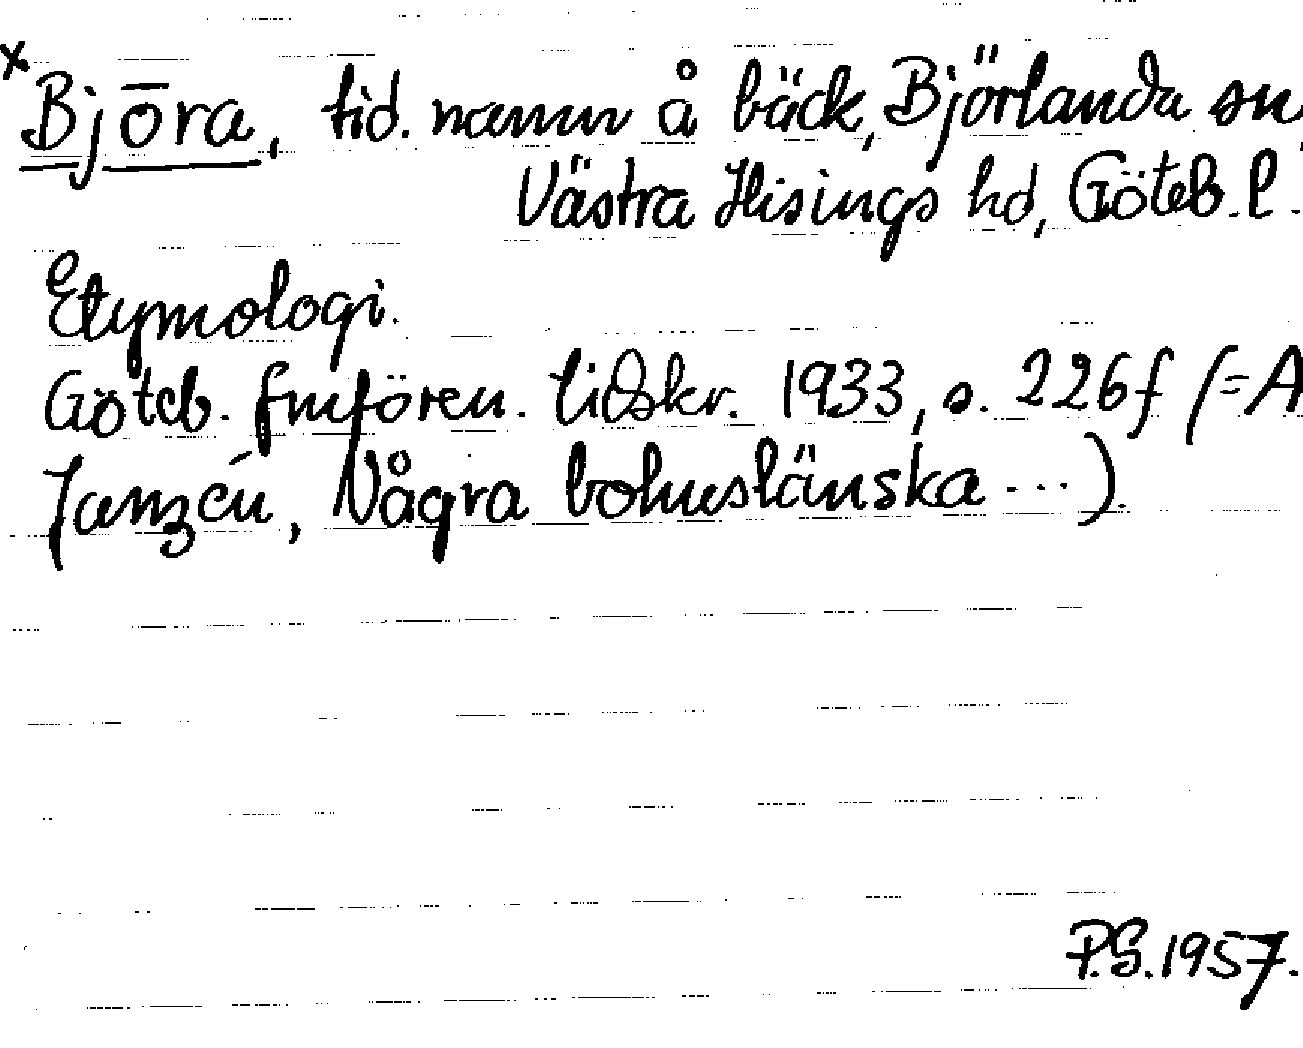 x Bjōra, tid. namn å bäck, Björlanda sn
Västra Hisings hd, Göteb. l.
Etymologi.
Göteb. fmfören. tidskr. 1933, s. 226f (=A
Janzén, Några bohuslänska ...).
P.S. 1957.